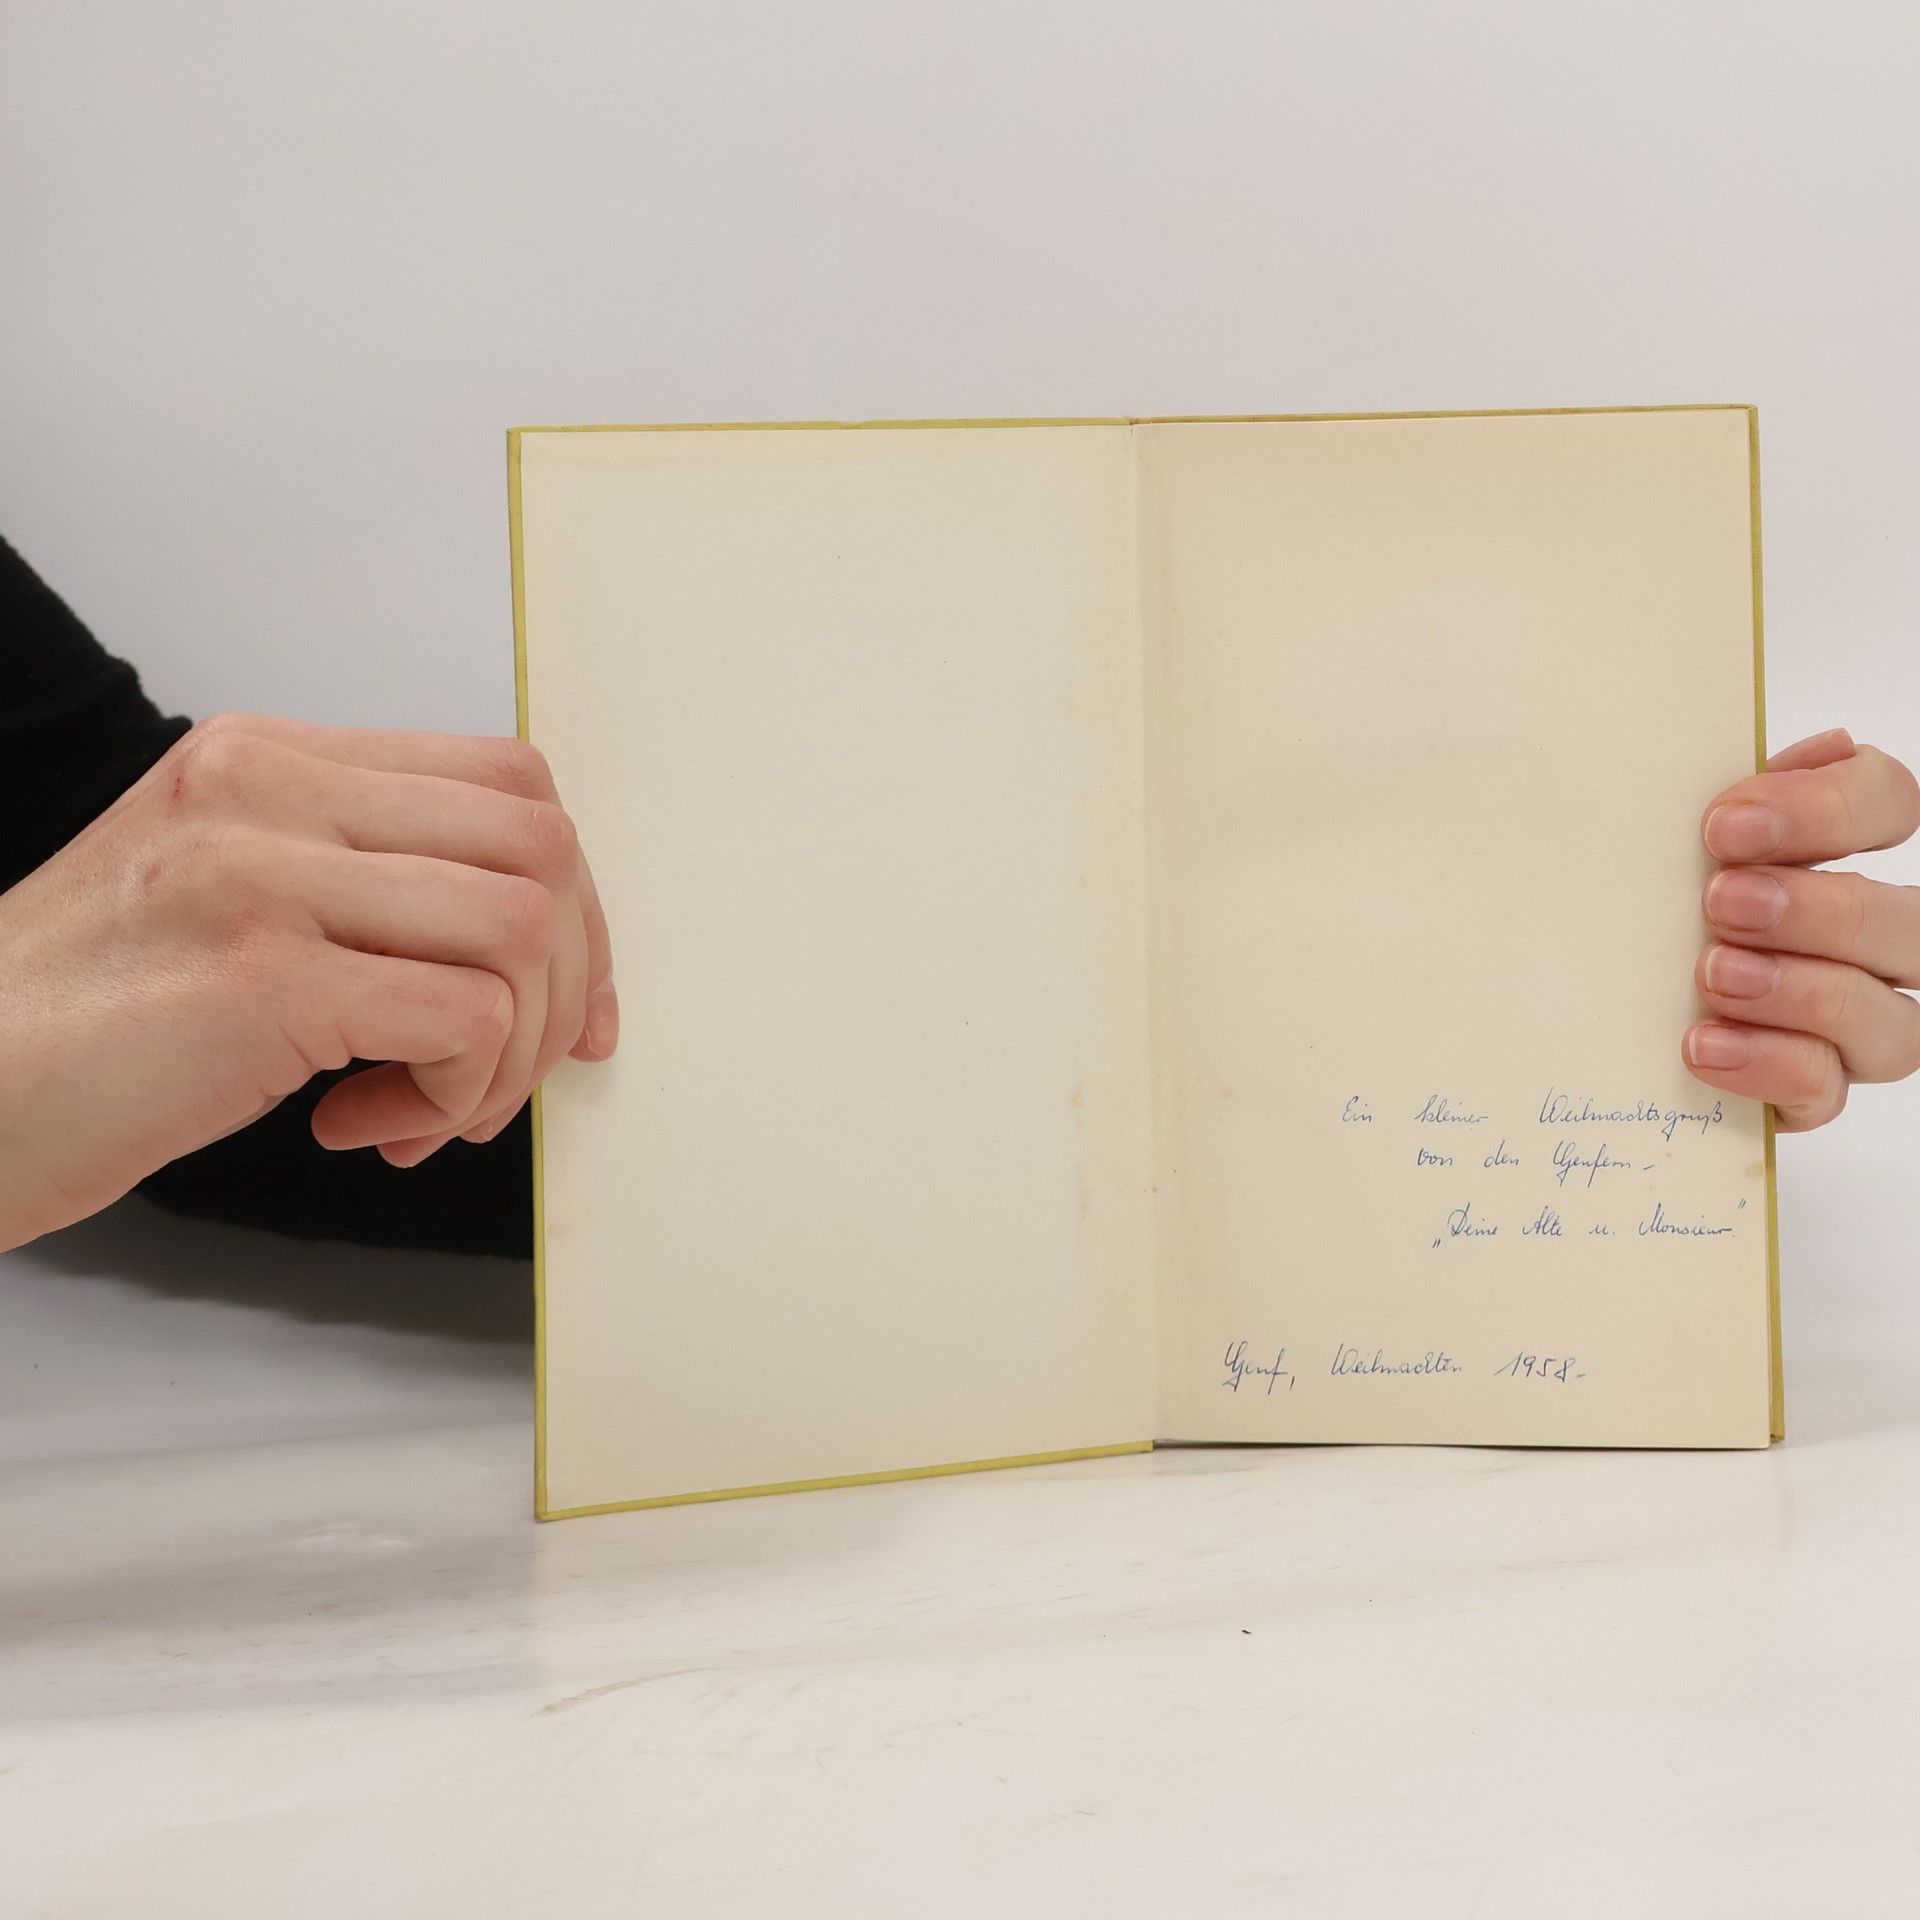 Ein kleiner Weihnachtsgruß
von den Genfern -
„Deine Alte u. Monsieur."
Genf, Weihnachten 1958.-